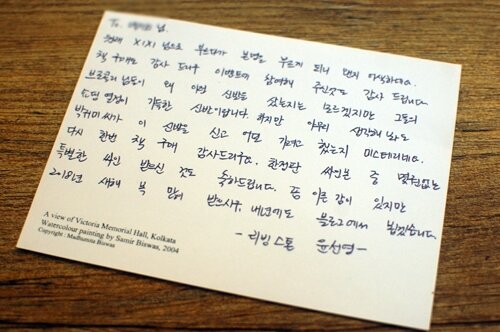 To. 님.
XIXI 님으로 부르다가 본명을 부르게 되니 왠지 어색하네요.
책 구매도 감사 드리구 이벤트에 참여해 주신것도 감사 드립니다.
브로콜리 님들이 왜 이런 신발을 샀는지는 모르겠지만 그들의
쇼핑 열정이 가득한 신발이랍니다. 하지만 아무리 생각해 봐도
박귀미 씨가 이 신발을 신고 어딜 가려고 했는지 미스테리네요.
다시 한번 책 구매 감사드리구요. 한정판 싸인본 중 몇권없는
특별한 싸인 받으신 것도 축하드립니다. 좀 이른 감이 있지만
2018년 새해 복 많이 받으시구, 내년에도 블로그에서 뵙겠습니다.
- 리빙스톤 윤선영 -
A view of Victoria Memorial Hall, Kolkata
Watercolour painting by Samir Biswas, 2004
Copyright : Madhumita Biswas